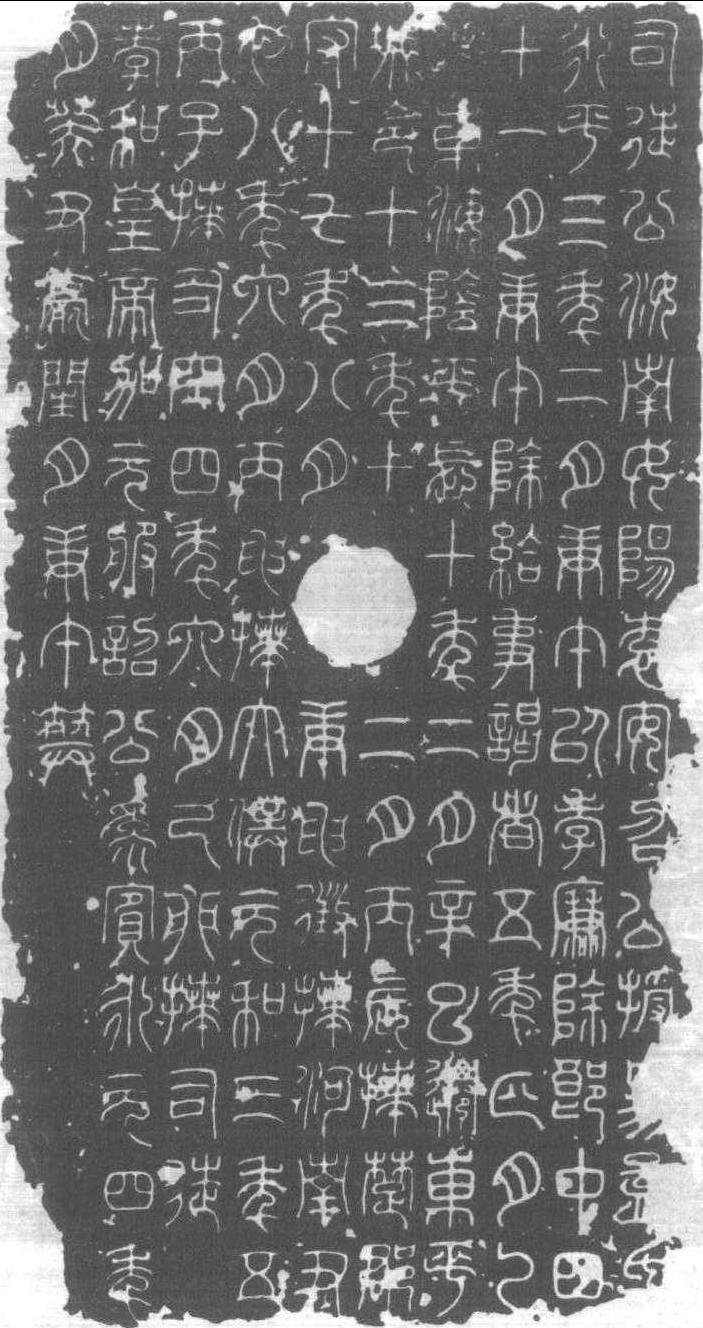 司徒公汝南女陽袁安召公授易孟氏
永平三年二月庚午以孝廉除郎中四
十一月庚午除給事謁者五年正月乙
東海陰平長十年二月辛巳遷東平
城令十三年十二月丙辰拜楚郡
守十七年八月庚申徵拜河南尹
初八年六月丙申拜太僕元和三年五
丙子拜司空四年六月己卯拜司徒
孝和皇帝加元服詔公為賓永元四年
月癸丑薨閏月庚午葬